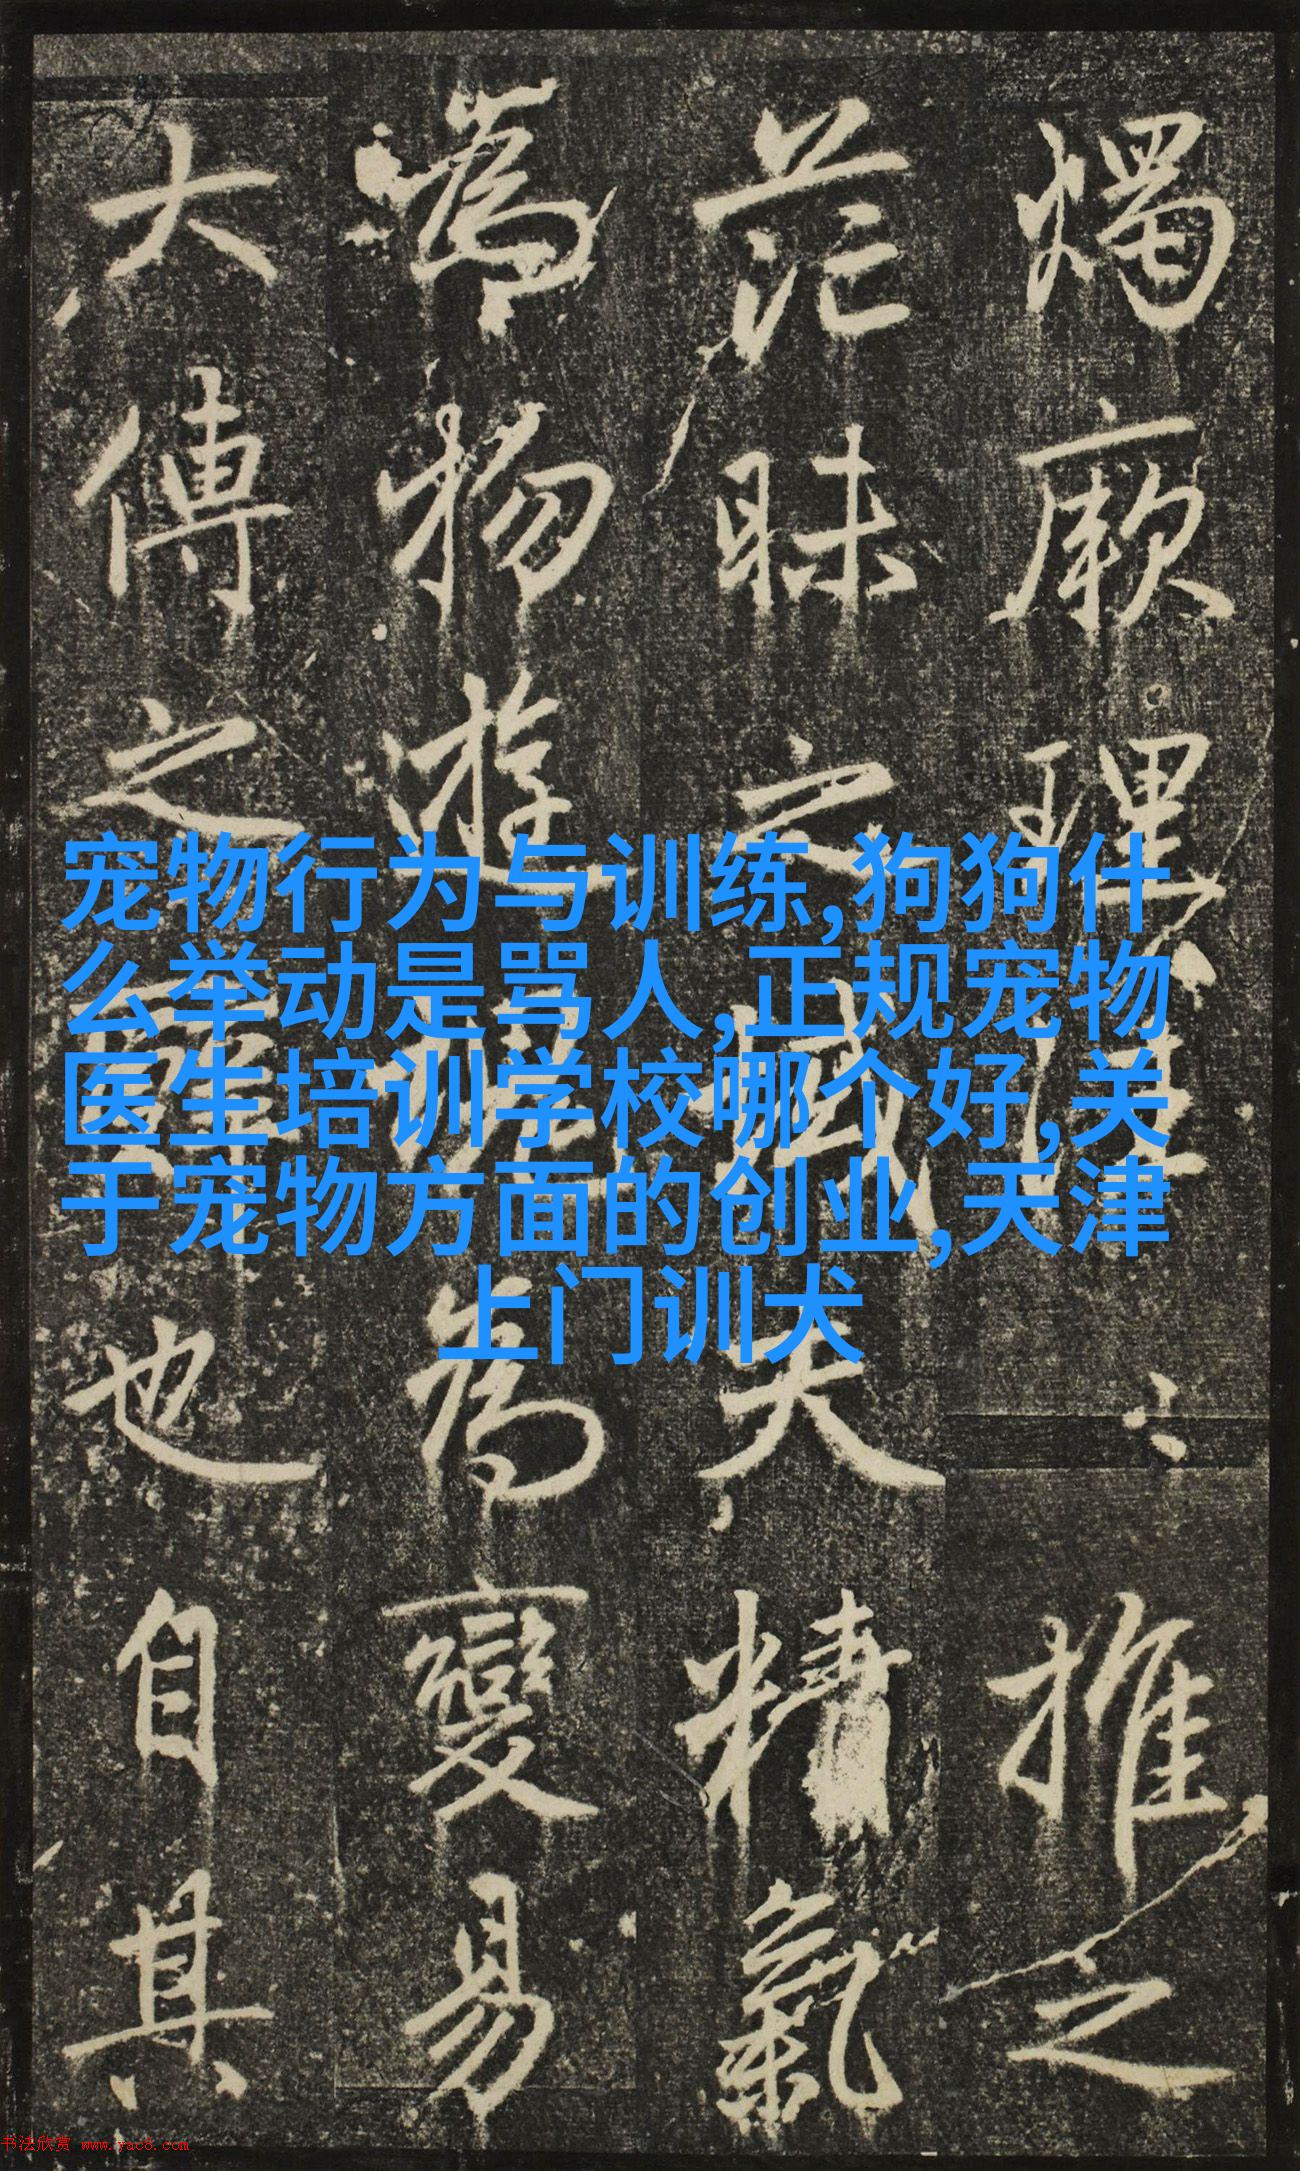 燭厥理推之
茫昧之域夫精氣
為物遊為變易
大傳之也自其
宠物行为与训练,狗狗什
么举动是骂人,正规宠物
医生培训学校哪个好,关
于宠物方面的创业,天津
上门训犬
书法欣赏 www.yac8.com